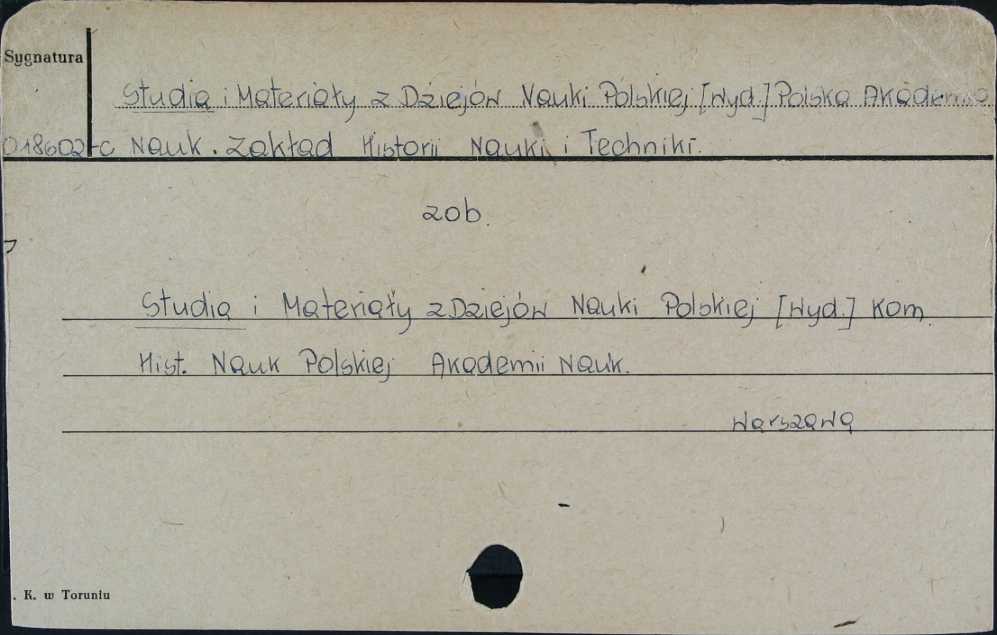 Sygnatura
Studia i Materiały z Dziejów Nauki Polskiej [Wyd.] Polska Akademia
018602-c Nauk. Zakład Historii Nauki i Techniki.
zob.
Studia i Materiały z Dziejów Nauki Polskiej [Wyd.] Kom.
Hist. Nauk Polskiej Akademii Nauk.
Warszawa
. K. w Toruniu